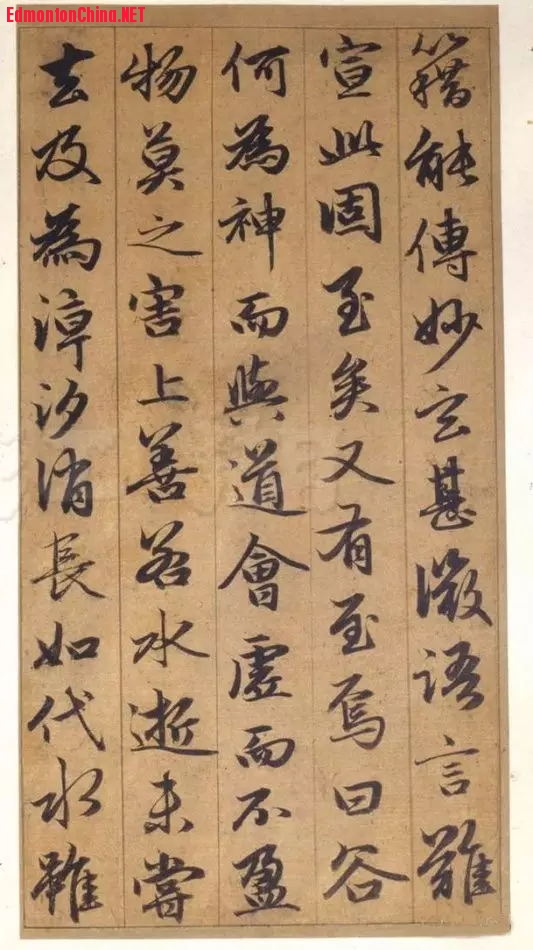 EdmontonChina.NET
籍能傳妙玄甚微語言難
宣此固至矣又有至焉曰谷
何為神而與道會虛而不盈
物莫之害上善若水逝未嘗
去及為漳汐消長如代水雖